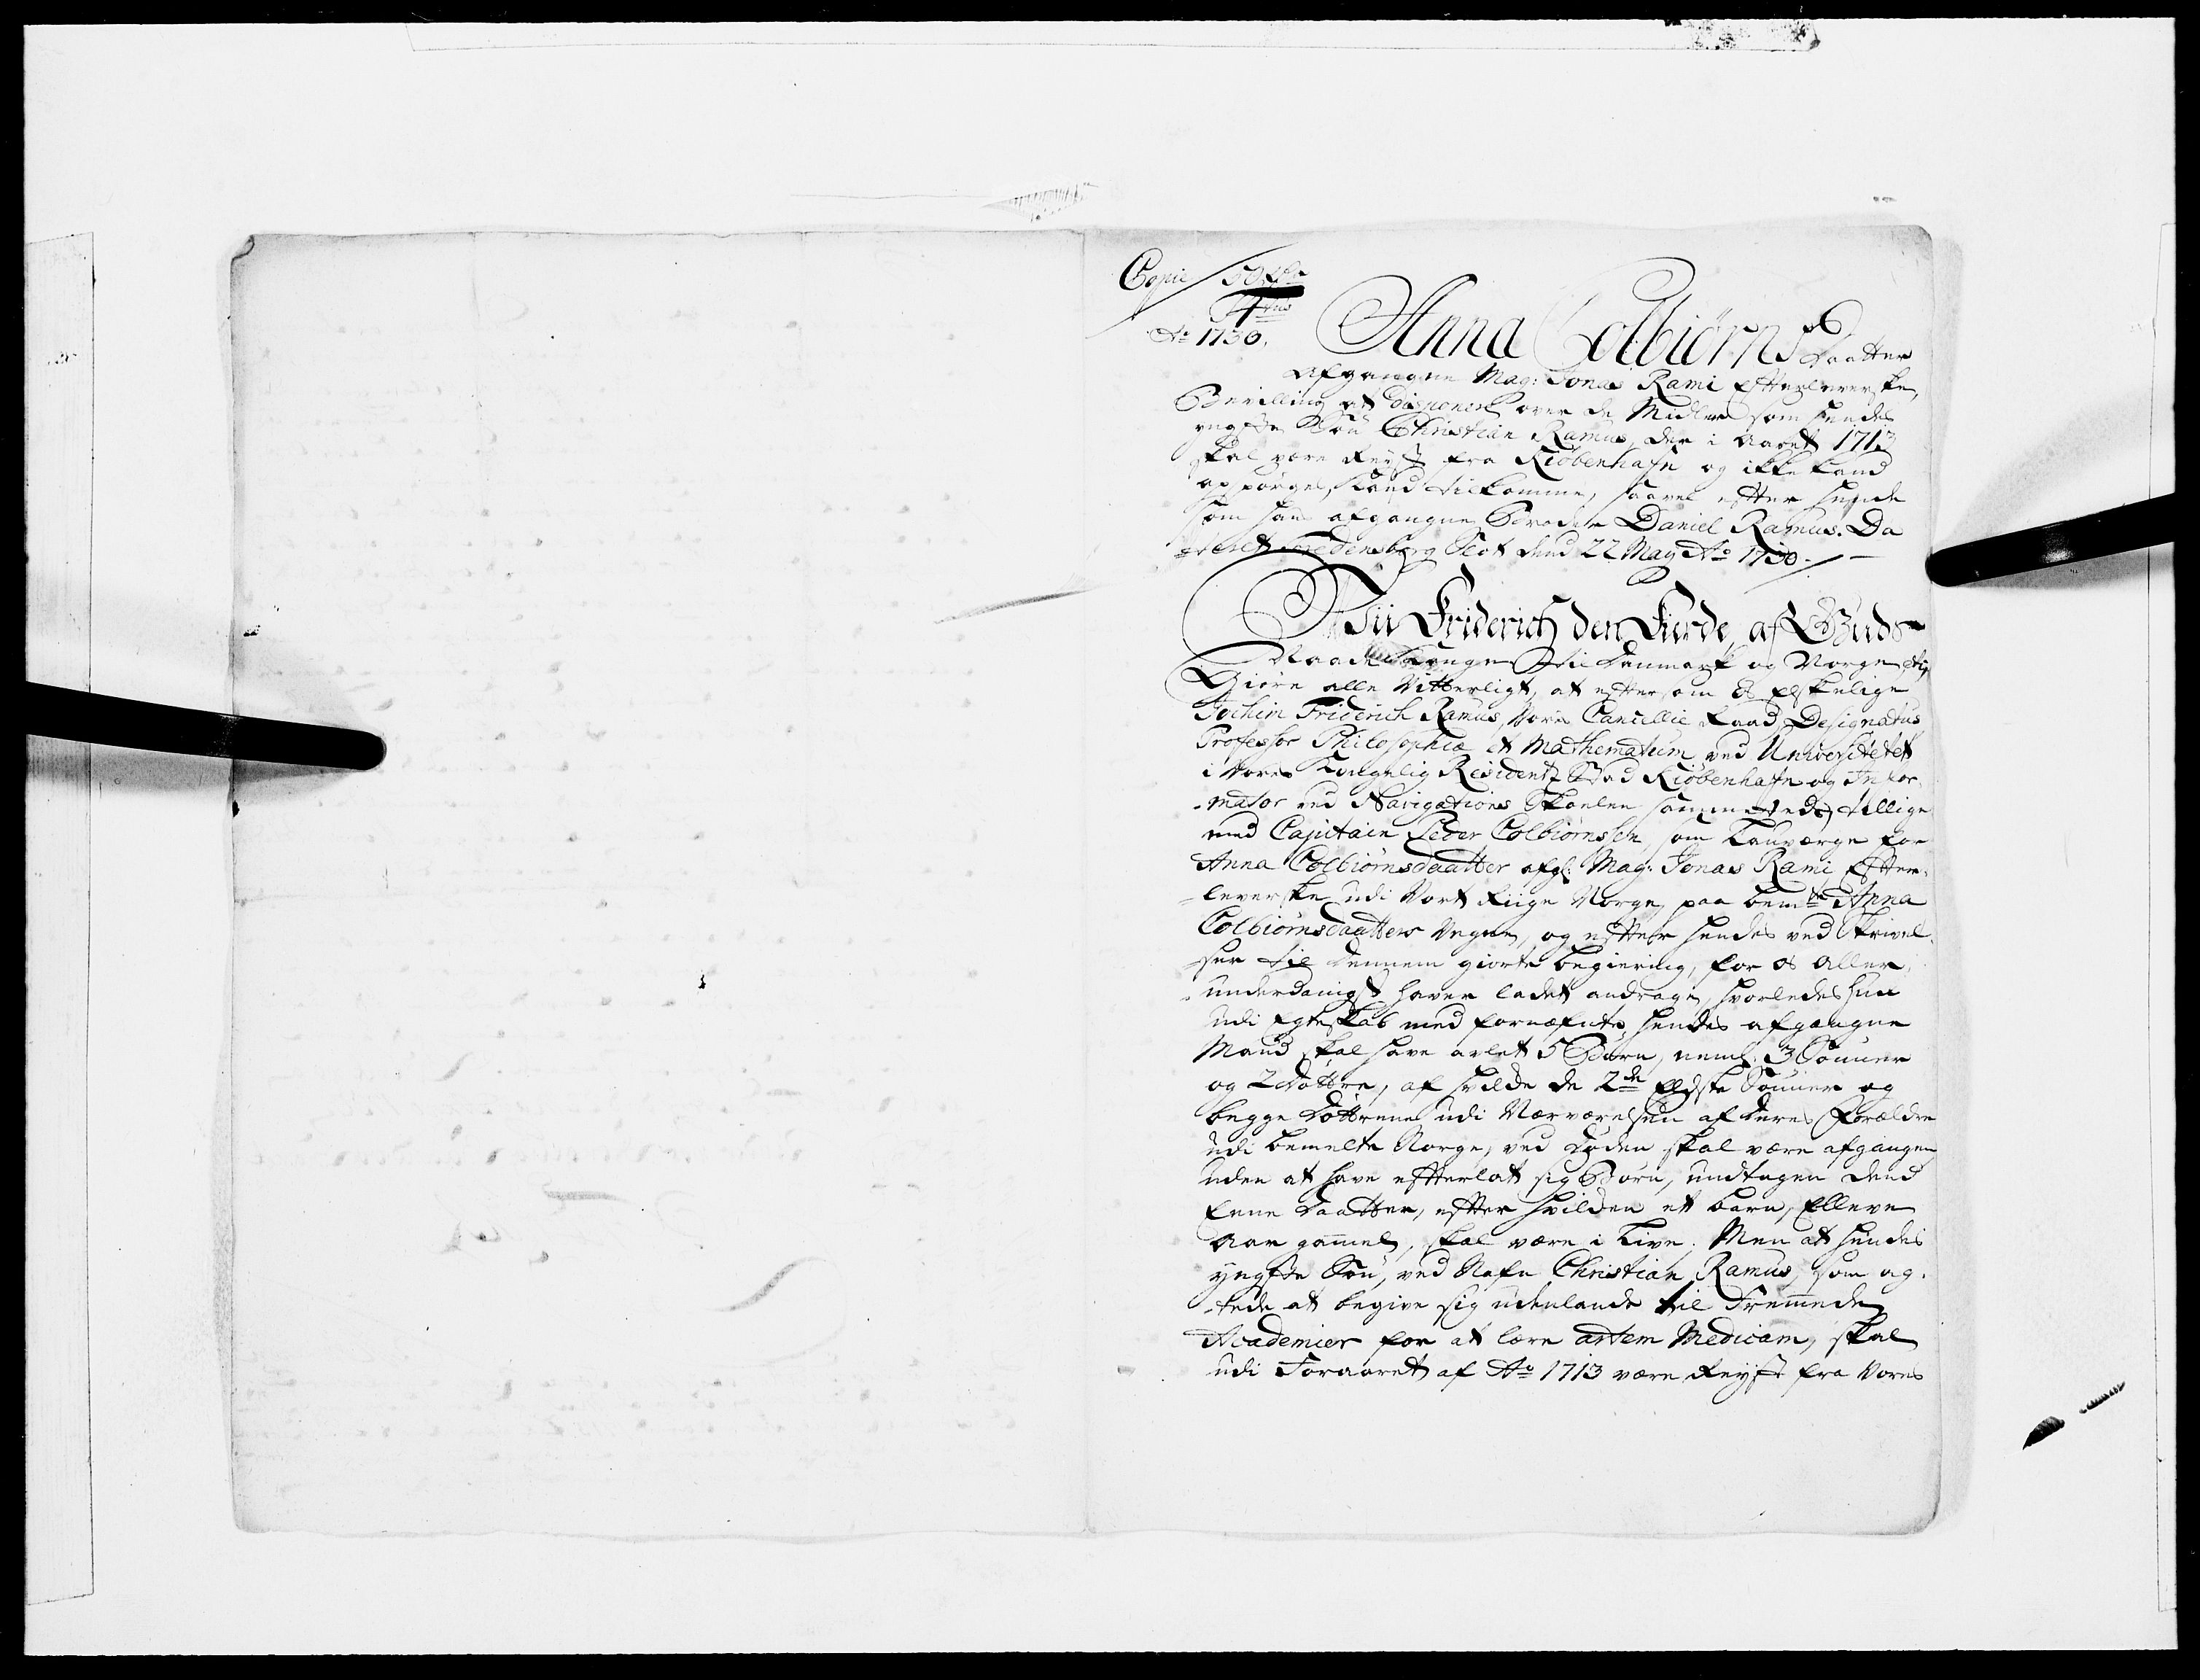 Copie
Ao 1730.
Anna Colbiørns Daatter
Afgangne Mag: Jonas Rami Efterleverske,
Bevilling at disponere over de Midler som hendes
yngste Søn Christian Ramus, der i Aaret 1713
skal være Reyst fra Kiøbenhafn og ikke kand
opspørges, kand tilkomme, saavel efter hende
som hans afgangne Broder Daniel Ramus. Da
-teret Fredensborg Slot dend 22 May Ao 1730.
Wii Friderich den Fierde, af Guds
Naade Konge til Danmark og Norge, etc,
Giøre alle Vitterligt, at eftersom Os Elskelige
Jochim Friderich Ramus, Vores Cancellie Raad, Designatus
Professor Philosophiæ et Mathematum ved Universitetet
i Vores Kongelig Residentz Stad Kiøbenhafn og Infor-
-mator ved Navigations Skoelen sammesteds, tillige
med Capitain Peder Colbiørnssen, som Laugværge for
Anna Colbiørnsdaatter afg: Mag: Jonas Rami Efter-
-leverske udi Vort Riige Norge, paa bemte Anna
Colbiørnsdaatters Vegne, og efter hendes ved Skrivel-
-ser til dennem giorte begiering, for os Aller-
-underdanigst haver ladet andrage, hvorledes hun
udi Egteskab med fornæfnte, hendes afgangne
Mand, skal have avlet 5 Børn, neml: 3 Sønner
og 2 Døttre, af hvilcke de 2de Eldste Sønner og
begge Døttrene udi Nærværelsen af deres Forældre
udi bemelte Norge, ved Døden skal være afgangen
uden at have efterlat sig Børn, undtagen dend
Eene Daatter, efter hvilden et barn, Elleve
Aar gammel, skal være i Live. Men at hendes
yngste Søn, ved Nafn Christian Ramus, som ag-
-tede at begive sig udenlands til Fremmede
Academier for at lære artem Medicam, skal
udi Foraaret af Ao 1713 være Reyst fra Vores